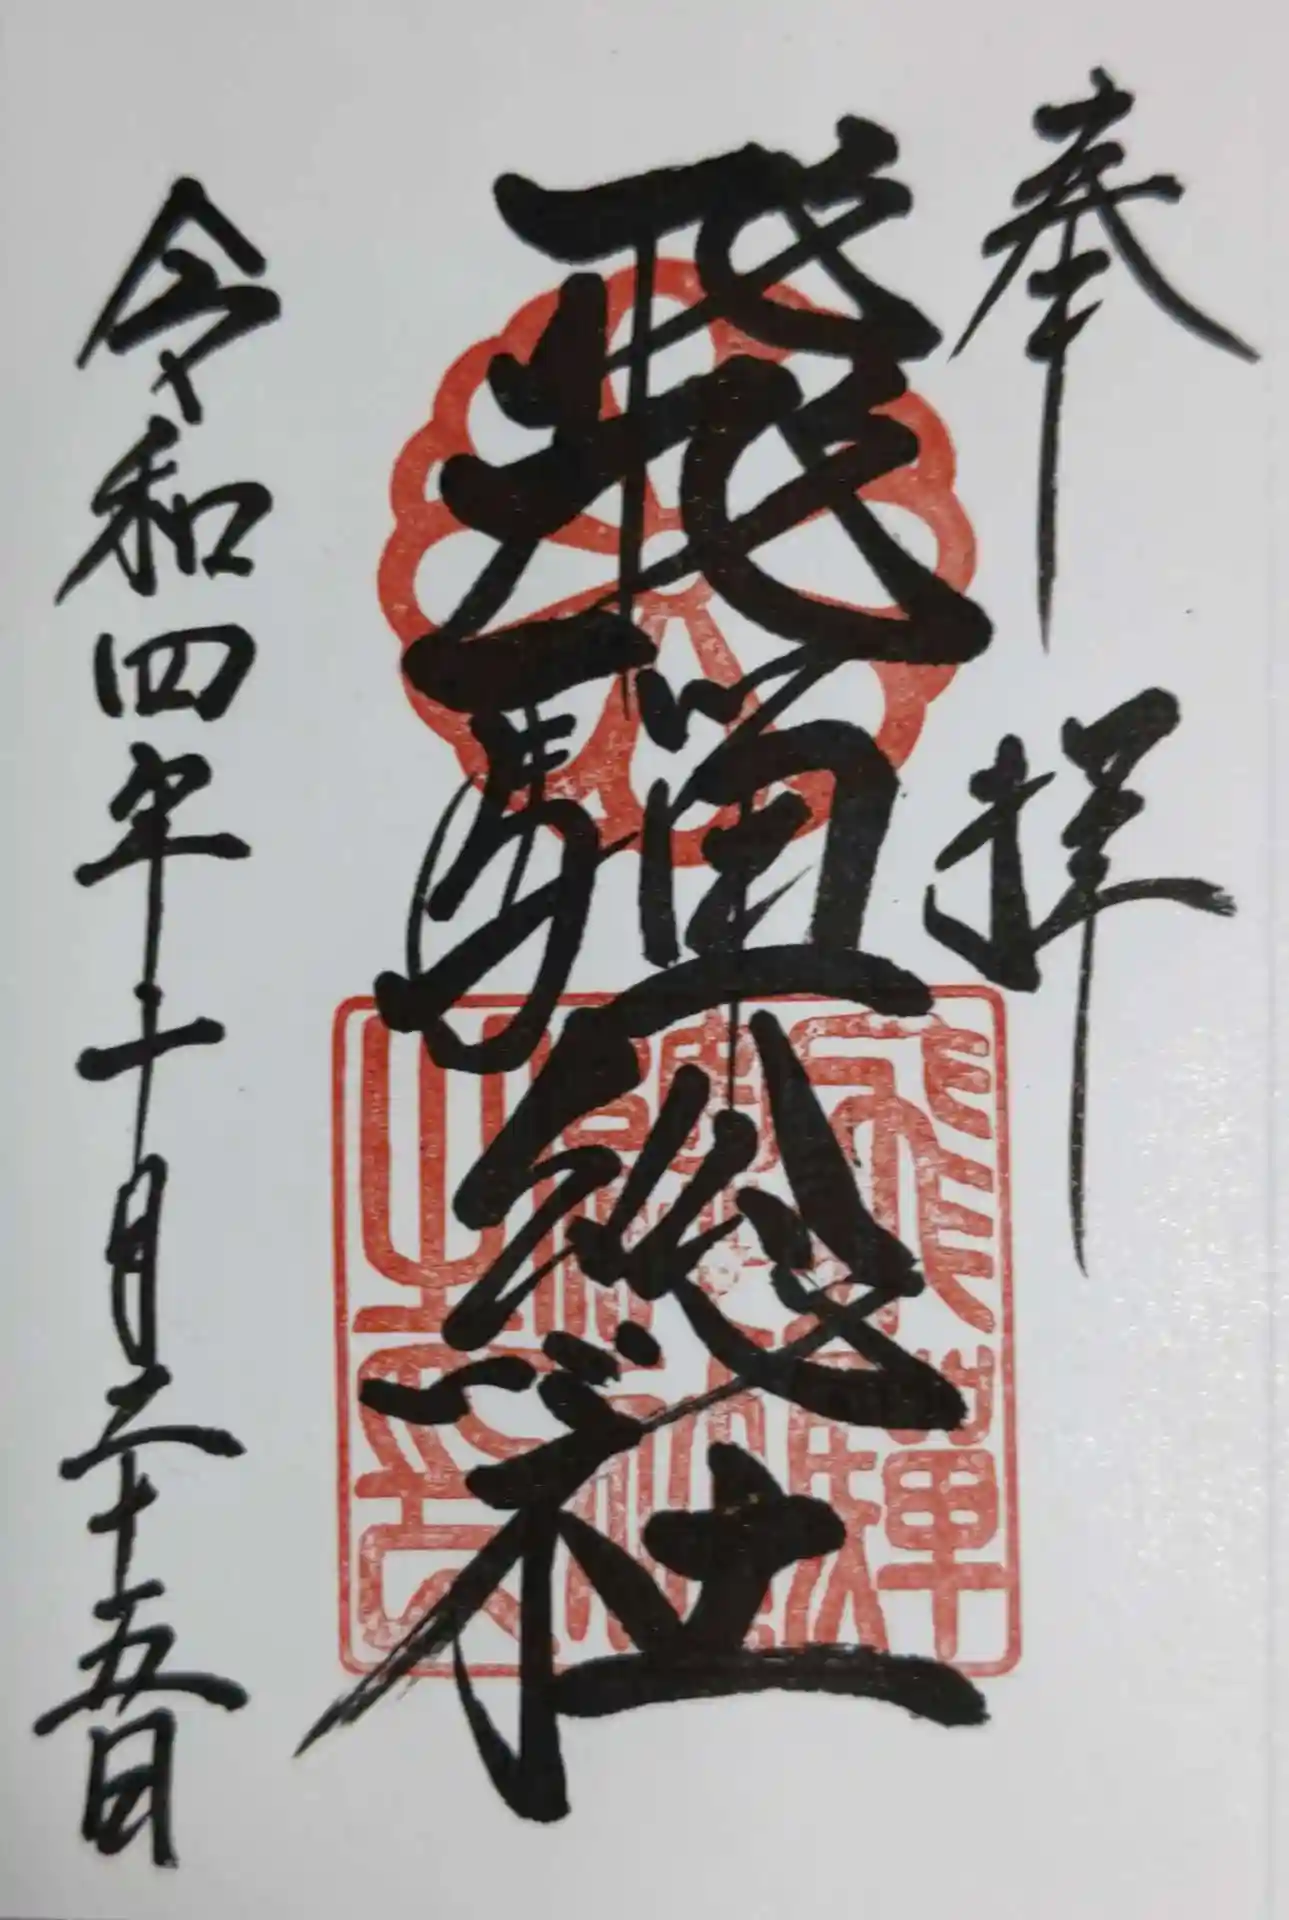 奉拝
飛騨総社
飛驒
總社
之印
令和四年十月二十五日